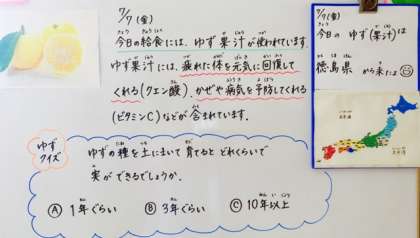 7/7(金)
今日の給食には、ゆず果汁が使われています。
ゆず果汁には、疲れた体を元気に回復して
くれる(クエン酸)、かぜや病気を予防してくれる
(ビタミンC)などが含まれています。
ゆず
クイズ
ゆずの種を土にまいて育てるとどれくらいで
実ができるでしょうか。
Ⓐ 1年ぐらい Ⓑ 3年ぐらい Ⓒ 10年以上
7/7(金)
今日のゆず(果汁)は
徳島県から来たよ